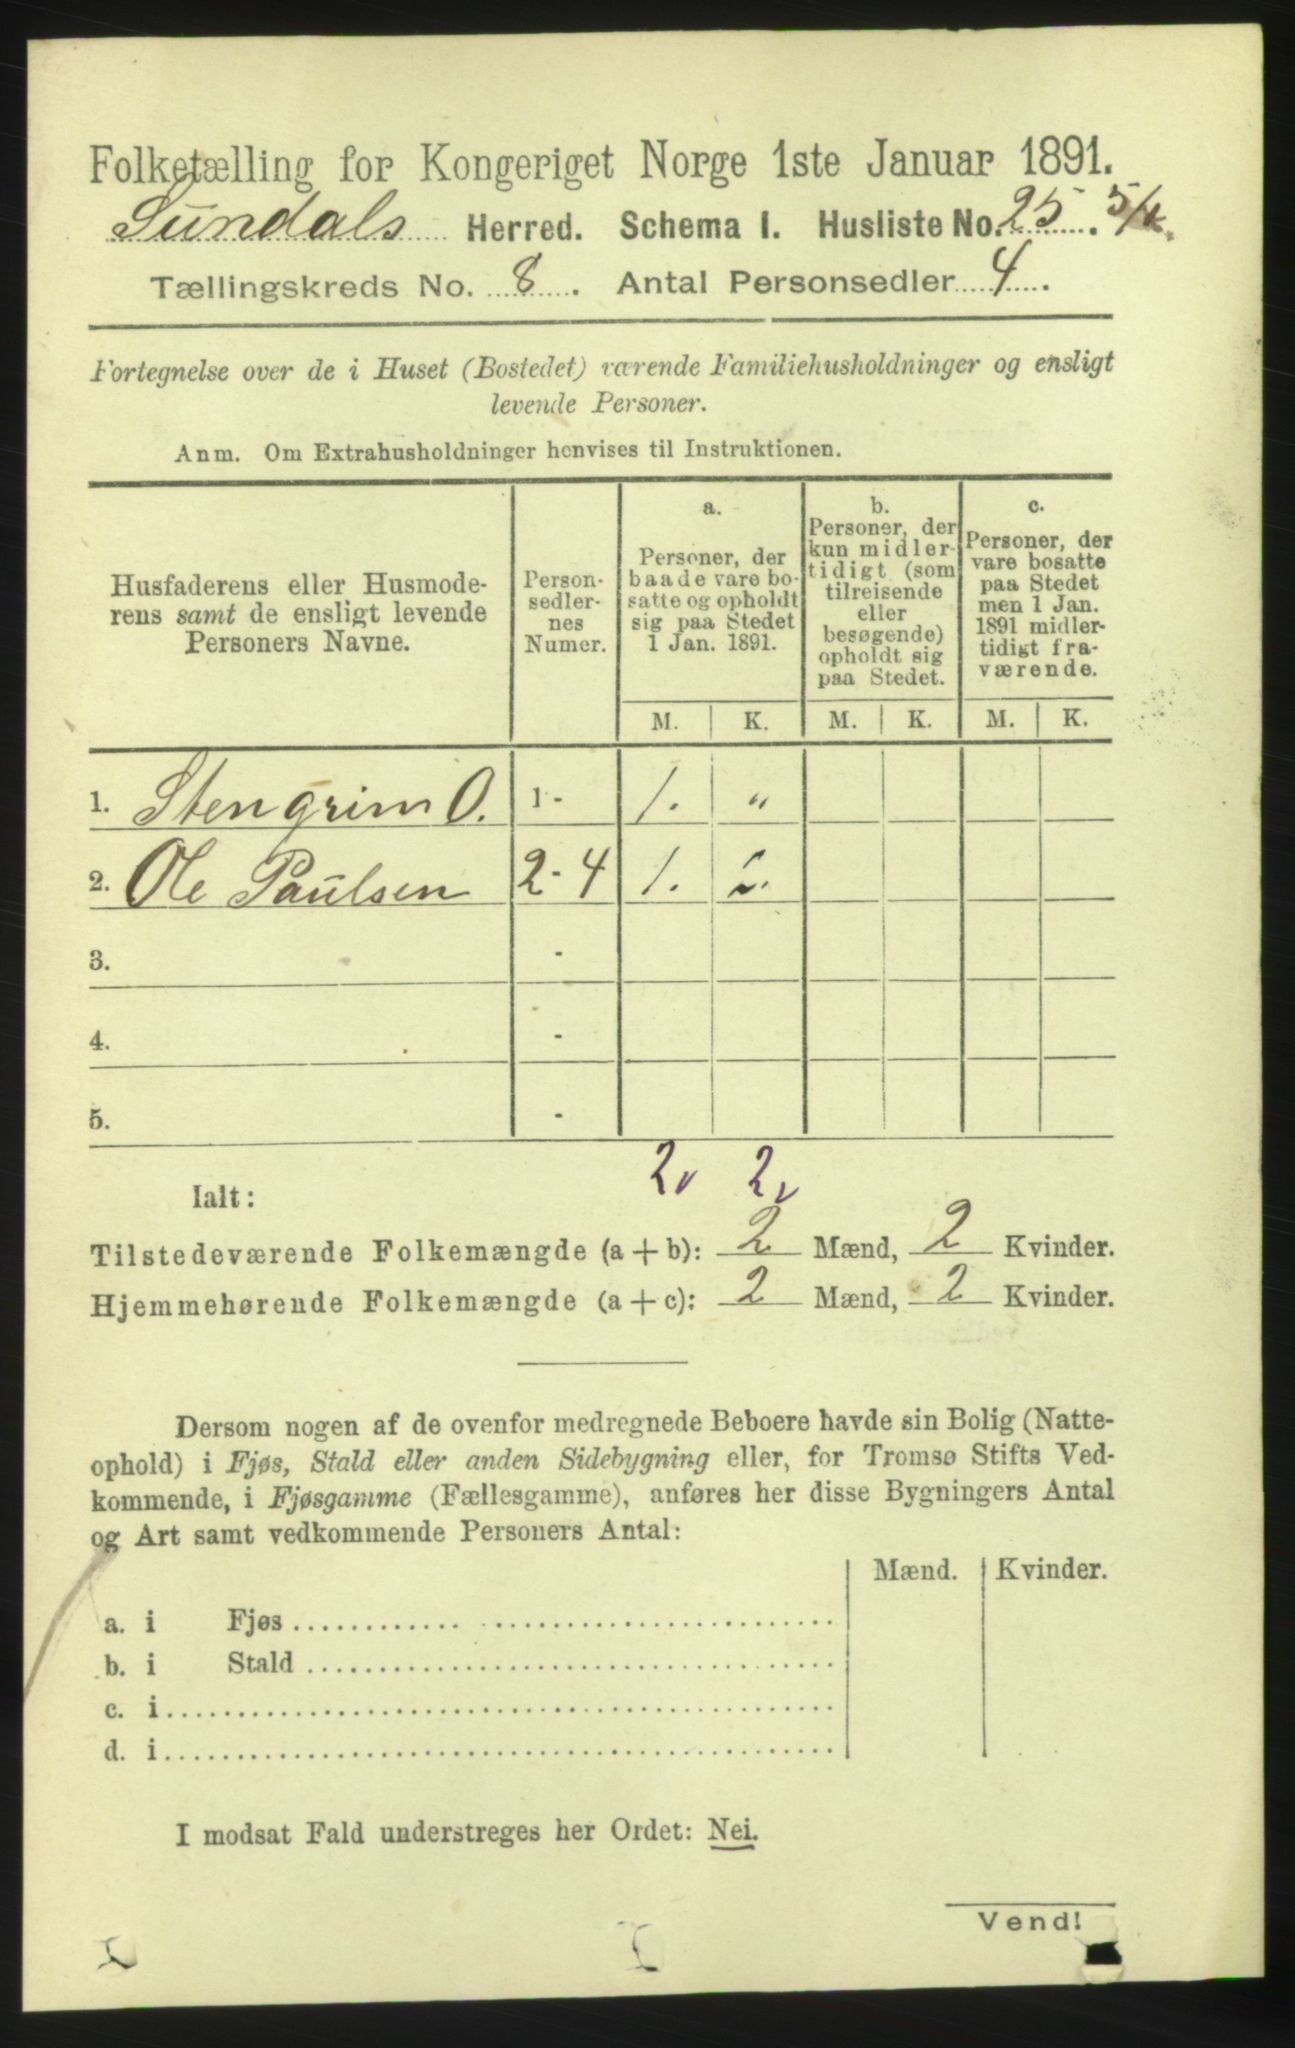 Folketælling for Kongeriget Norge 1ste Januar 1891.
Sundals Herred. Schema I. Husliste No. 25.
Tællingskreds No. 8. Antal Personsedler 4.
Fortegnelse over de i Huset (Bostedet) værende Familiehusholdninger og ensligt
levende Personer.
Anm. Om Extrahusholdninger henvises til Instruktionen.
Husfaderens eller Husmode-
rens samt de ensligt levende
Personers Navne.
Person-
sedler-
nes
Numer.
a.
Personer, der
baade vare bo-
satte og opholdt
sig paa Stedet
1 Jan. 1891.
b.
Personer, der
kun midler-
tidigt (som
tilreisende
eller
besøgende)
opholdt sig
paa Stedet.
c.
Personer, der
vare bosatte
paa Stedet
men 1 Jan.
1891 midler-
tidigt fra-
værende.
M. K. M. K. M. K.
1. Stengrim O. 1 - 1. "
2. Ole Paulsen 2 - 4 1. 2.
3. -
4. -
5. -
2 2
Ialt:
Tilstedeværende Folkemængde (a + b): 2 Mænd, 2 Kvinder.
Hjemmehørende Folkemængde (a + c): 2 Mænd, 2 Kvinder.
Dersom nogen af de ovenfor medregnede Beboere havde sin Bolig (Natte-
ophold) i Fjøs, Stald eller anden Sidebygning eller, for Tromsø Stifts Ved-
kommende, i Fjøsgamme (Fællesgamme), anføres her disse Bygningers Antal
og Art samt vedkommende Personers Antal:
Mænd. Kvinder.
a. i Fjøs
b. i Stald
c. i
d. i
I modsat Fald understreges her Ordet: Nei.
Vend!